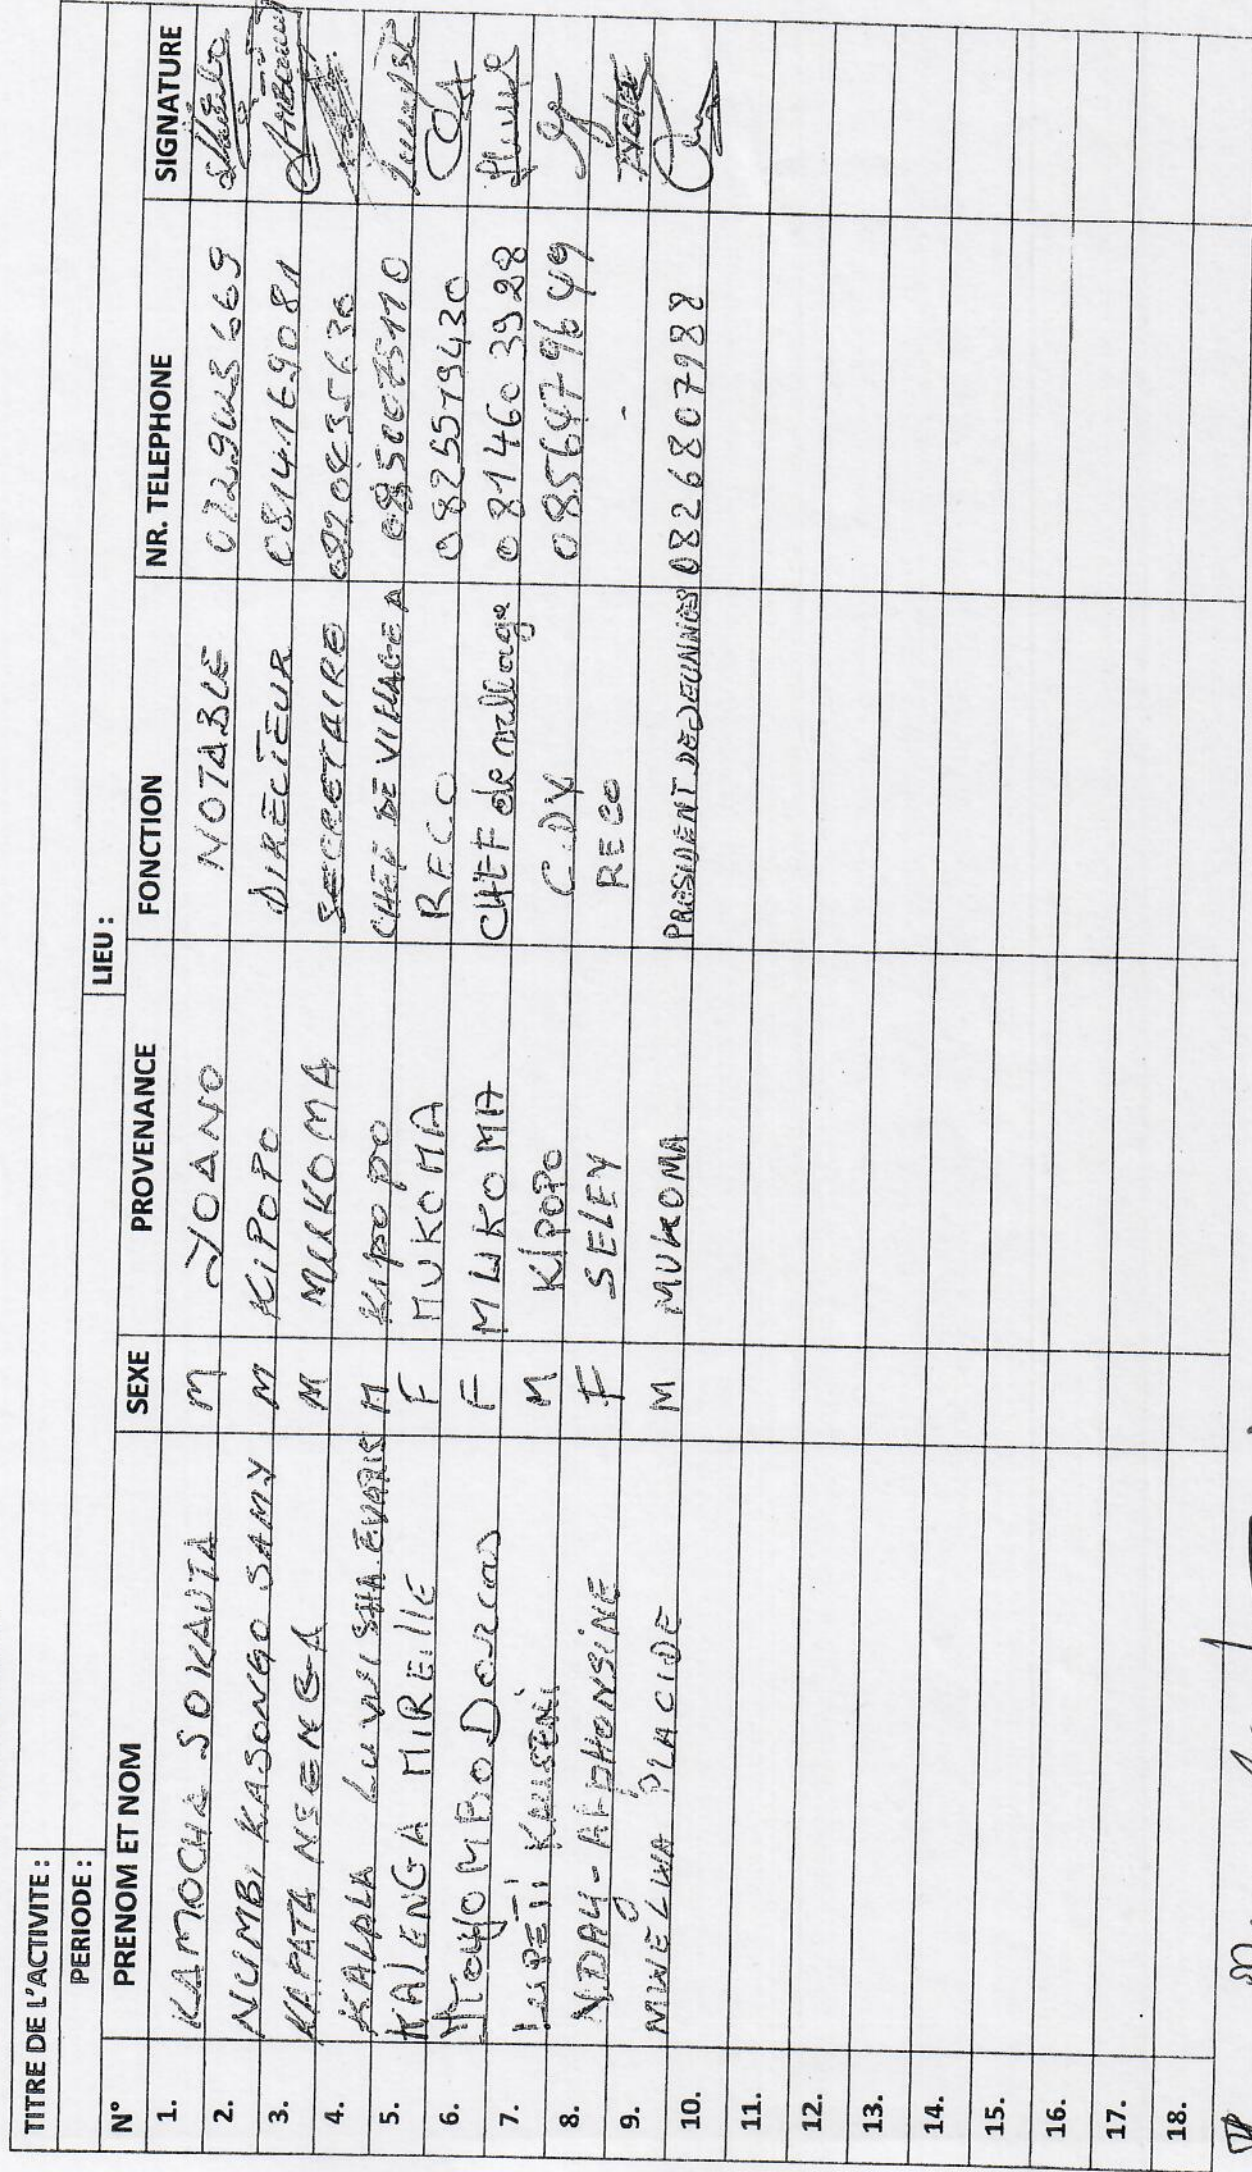 TITRE DE L'ACTIVITE :
PERIODE : LIEU :
N° PRENOM ET NOM SEXE PROVENANCE FONCTION NR. TELEPHONE SIGNATURE
1. KAMOCHA SOKAUTA M JOANO NOTABLE
2. NUMBI KASONGO SAMY M KIPOPO DIRECTEUR 0814169081
3. KAPATA NSENGA M MUKOMA SECRETAIRE
4. KALALA LUWISHA EVARIS M Kipopo CHEF DE VILLAGE A
5. KALENGA MIREILLE F MUKOMA RECO 0825519430
6. Dorcas F MUKOMA CHEF de village 0814603928
7. M KIPOPO 0856479649
8. NDAY-ALPHONSINE F SELEY RECO -
9. MWELWA PLACIDE M MUKOMA PRESIDENT DE JEUNNES 0826807988
10.
11.
12.
13.
14.
15.
16.
17.
18.